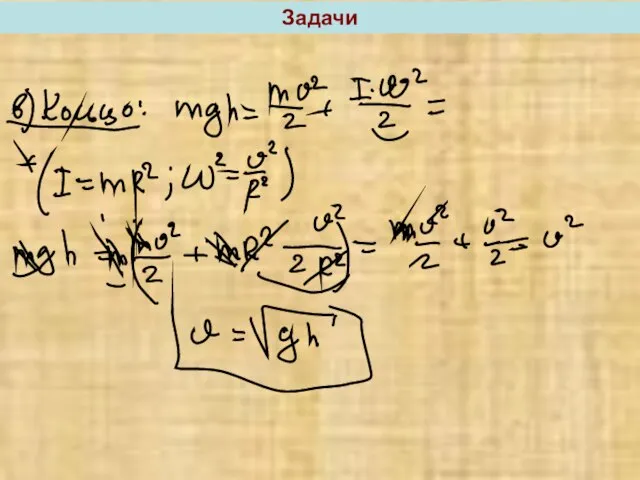 Задачи
в) Кольцо: mgh = mv²/2 + I·ω²/2 =
* (I = mR²; ω² = v²/R²)
mgh = mv²/2 + mR² v²/2R² = mv²/2 + v²/2 = v²
v = √gh